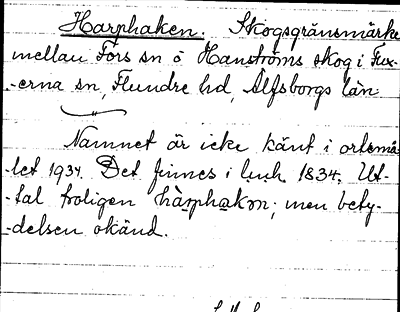 Harphaken. Skogsgränsmärke
mellan Fors sn o Hanströms skog i Fux-
-erna sn, Flundre hd, Älfsborgs län.
Namnet är icke känt i ortsmå-
-let 1934. Det finnes i 1834. Ut-
-tal troligen hàrphakɷn; men bety-
-delsen okänd.